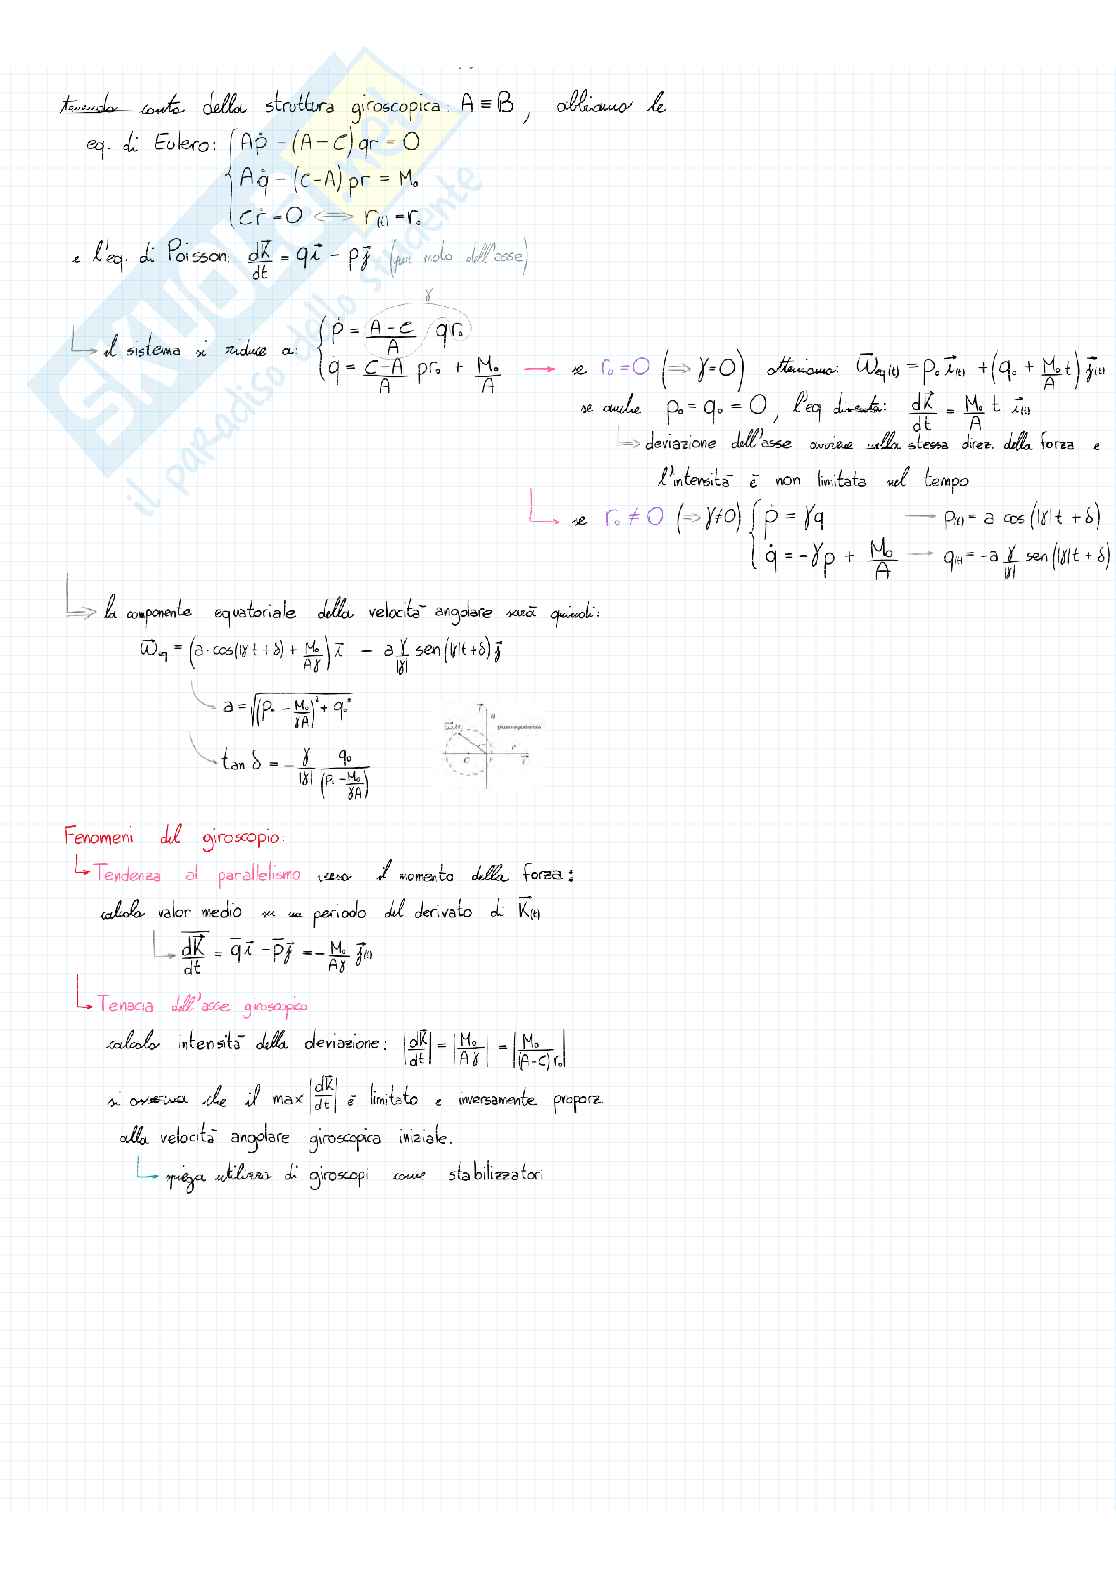 tenendo conto della struttura giroscopica: A ≡ B, abbiamo le
eq. di Eulero: { Aṗ - (A-C) qr = 0
Aq̇ - (C-A) pr = M₀
Cṙ = 0 ⟺ r(t) = r₀
e l'eq. di Poisson: dk⃗/dt = q i⃗ - p j⃗ (per moto dell'asse)
γ
↳ il sistema si riduce a: { ṗ = (A-C)/A q r₀
q̇ = (C-A)/A p r₀ + M₀/A → se r₀ = 0 (⇒ γ = 0) otteniamo: ω⃗eq(t) = p₀ i⃗(t) + (q₀ + M₀/A t) j⃗(t)
se anche p₀ = q₀ = 0, l'eq diventa: dk⃗/dt = M₀/A t i⃗(t)
↳ deviazione dell'asse avviene nella stessa direz. della forza e
l'intensità è non limitata nel tempo
↳ se r₀ ≠ 0 (⇒ γ ≠ 0) { ṗ = γq — p(t) = a cos(|γ|t + δ)
q̇ = -γp + M₀/A — q(t) = -a γ/|γ| sen(|γ|t + δ)
↳ la componente equatoriale della velocità angolare sarà quindi:
ω⃗eq = (a·cos(|γ|t + δ) + M₀/Aγ) i⃗ - a γ/|γ| sen(|γ|t + δ) j⃗
a = √((p₀ - M₀/γA)² + q₀²)
tan δ = - γ/|γ| q₀/(p₀ - M₀/γA)
Fenomeni del giroscopio:
↳ Tendenza al parallelismo verso il momento della forza:
calcolo valor medio su un periodo del derivato di K⃗(t)
↳ dK⃗/dt = q̄ i⃗ - p̄ j⃗ = - M₀/Aγ j⃗(t)
↳ Tenacia dell'asse giroscopico
calcolo intensità della deviazione: |dk⃗/dt| = |M₀/Aγ| = |M₀/(A-C)r₀|
si osserva che il max |dk⃗/dt| è limitato e inversamente proporz.
alla velocità angolare giroscopica iniziale.
↳ spiega utilizzo di giroscopi come stabilizzatori
SKUOLA.net
il paradiso dello studente